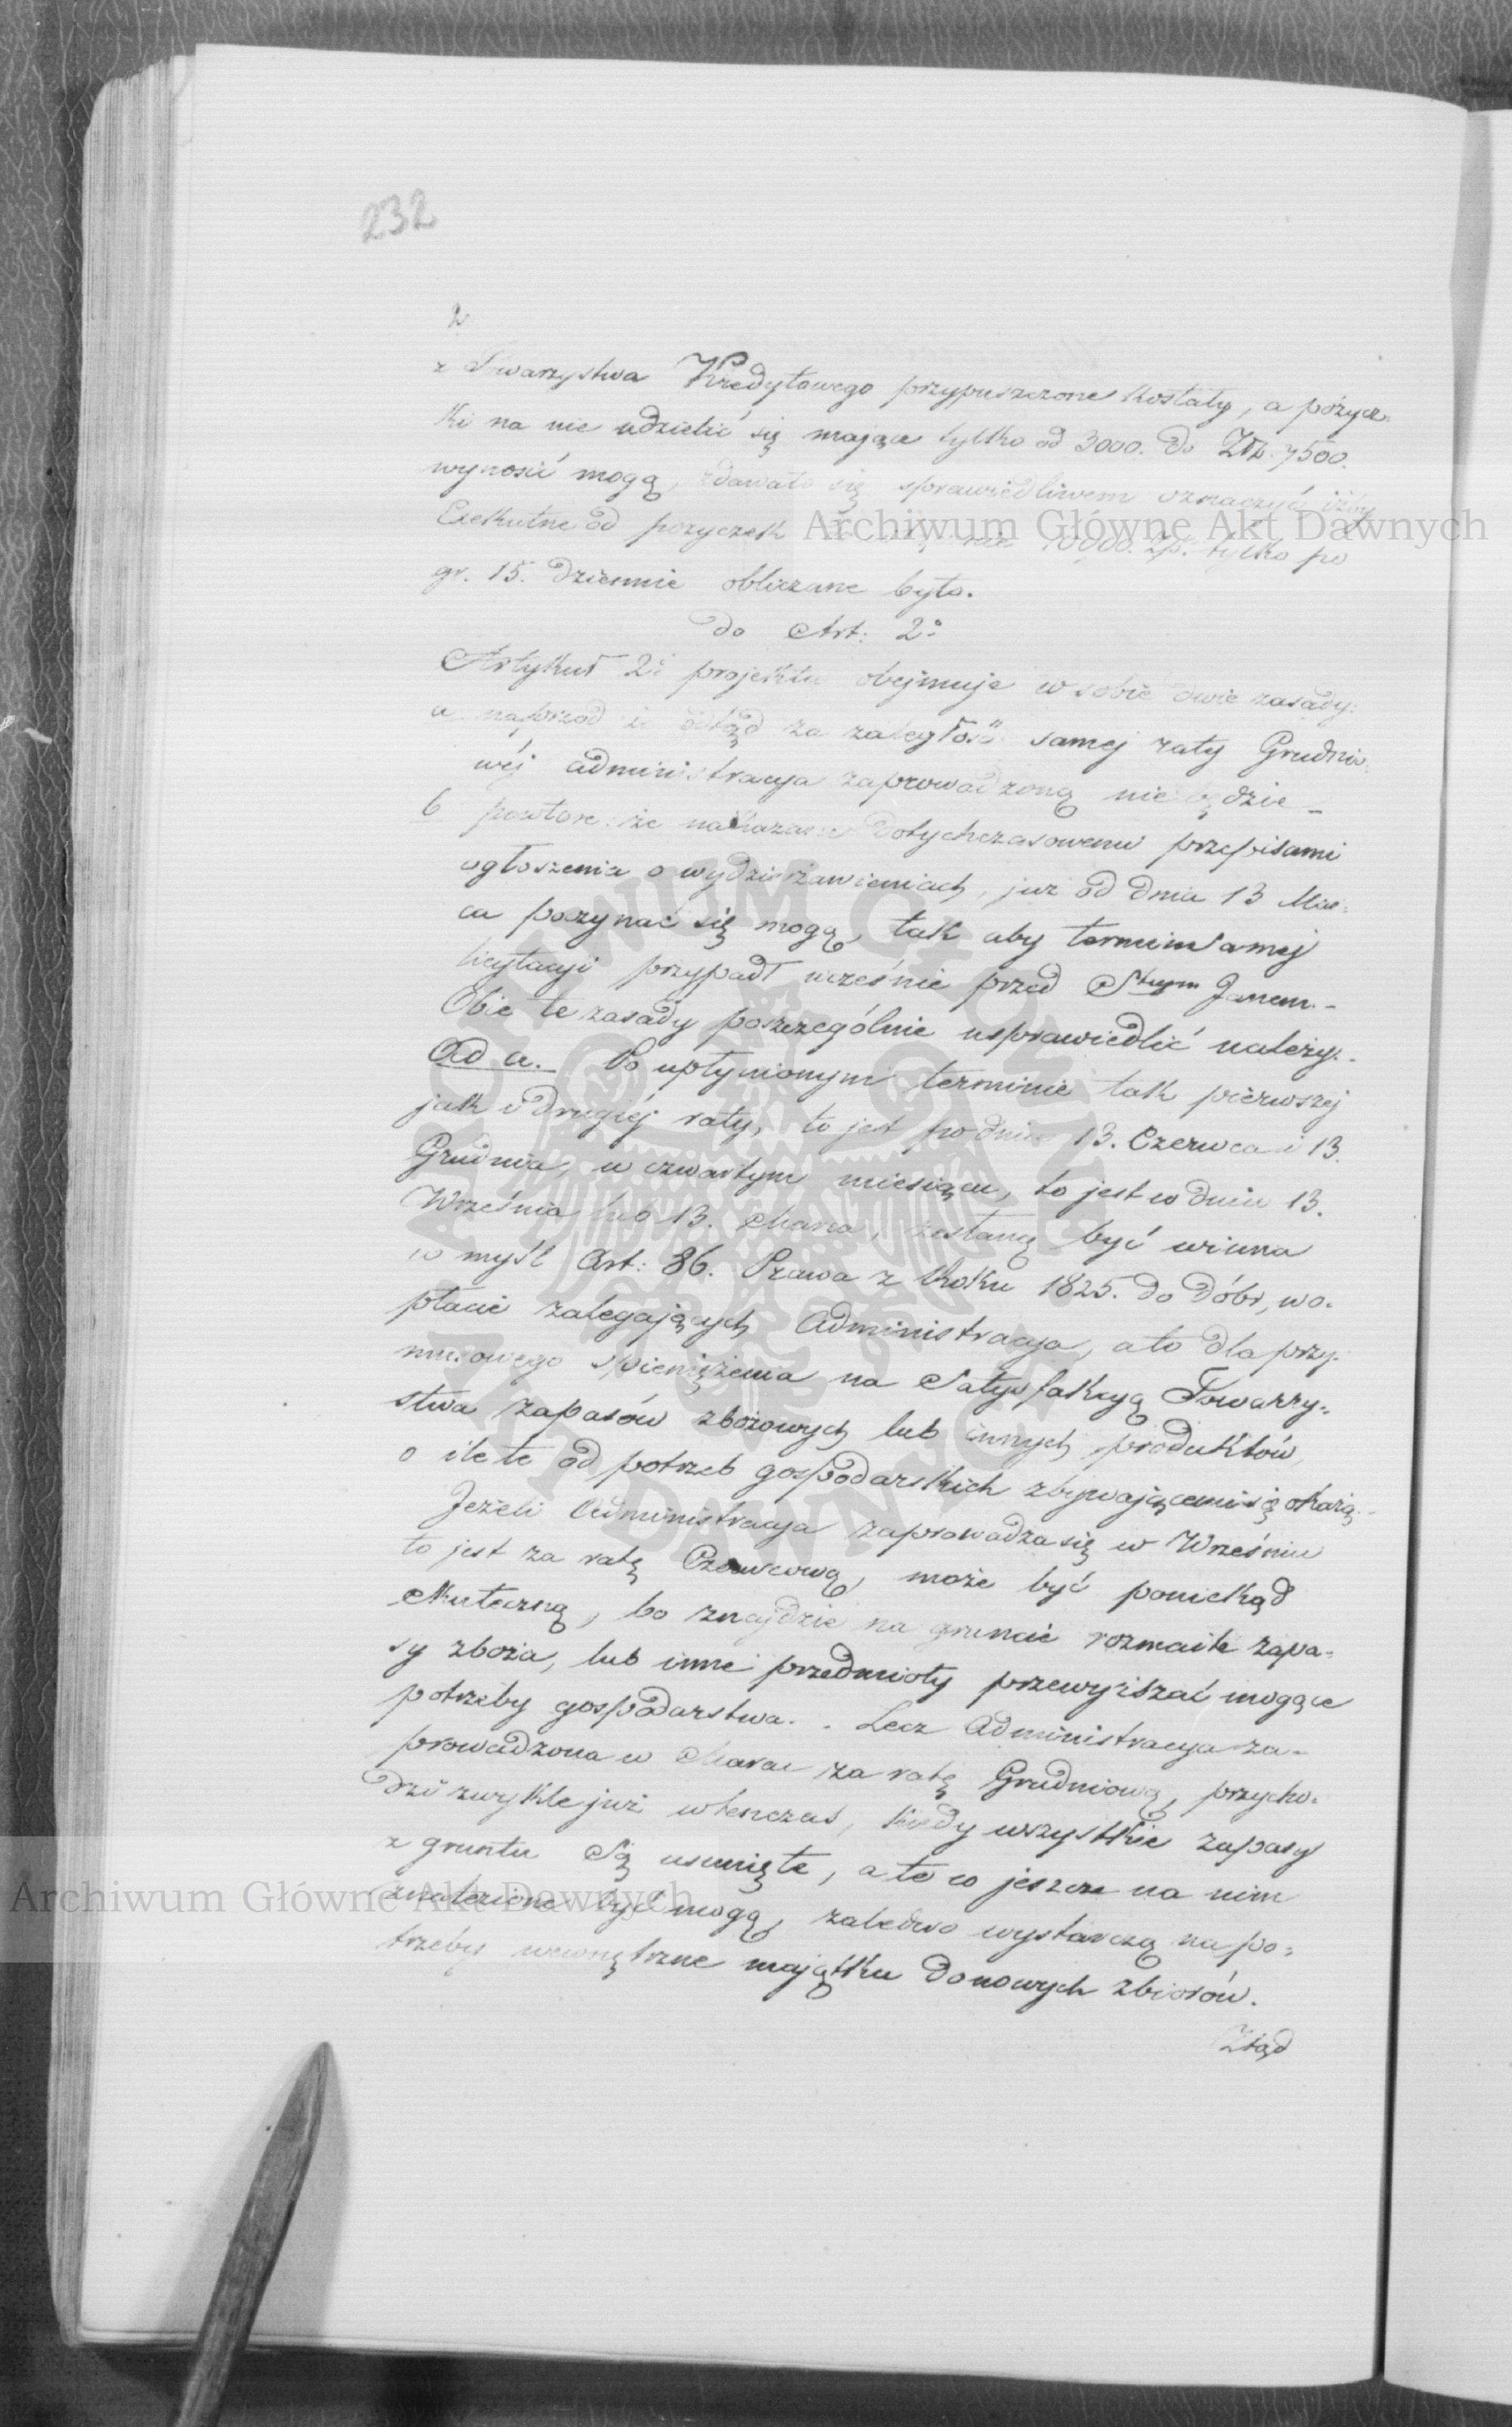 232
2
z Towarzystwa Kredytowego przypuszczone zostały, a pożycz-
ki na nie udzielić się mające tylko od 3000. do Złp. 7500.
wynosić mogą, zdawało się sprawiedliwem oznaczyć iżby
Exekutne od pożyczek 10000. Złp. tylko po
gr. 15. dziennie obliczane było.
do Art: 2o
Artykuł 2o projektu obejmuje w sobie dwie zasady:
a naprzód iż odtąd za zaległość samej raty Grudnio-
wéj administracya zaprowadzoną nie będzie –
b powtóre że nakazane dotychczasowemi przepisami
ogłoszenia o wydzierżawieniach, już od dnia 13 Mar-
ca poczynać się mogą, tak aby termin samej
licytacyi przypadł wcześnie przed Stym Janem. –
Obie te zasady poszczególnie usprawiedlić należy. –
Ad a. – Po upłynionym terminie tak pierwszej
jak i drugiéj raty, to jest po dniu 13. Czerwca i 13.
Grudnia, w czwartym miesiącu, to jest w dniu 13.
Września lub 13. Marca, zesłaną być winna
w myśl Art: 86. Prawa z Roku 1825. do dóbr, w o-
płacie zalegających Administracya, a to dla przy-
musowego spieniężenia na Satysfakcyą Towarzy-
stwa zapasów zbożowych lub innych produktów,
o ile te od potrzeb gospodarskich zbywającemi się okażą. –
Jeżeli Administracya zaprowadza się w Wrześniu
to jest za ratę Czerwcową, może być poniekąd
skuteczną, bo znajdzie na gruncie rozmaite zapa-
sy zboża, lub inne przedmioty przewyższać mogące
potrzeby gospodarstwa. . Lecz Administracya za-
prowadzona w Marcu za ratę Grudniową, przycho-
dzi zwykle już wtenczas, kiedy wszystkie zapasy
z gruntu są usunięte, a te co jeszcze na nim
znalezione być mogą, zaledwo wystarczą na po-
trzeby wewnętrzne majątku do nowych zbiorów.
Ztąd
Archiwum Główne Akt Dawnych
Archiwum Główne Akt Dawnych
ARCHIWUM GŁÓWNE AKT DAWNYCH